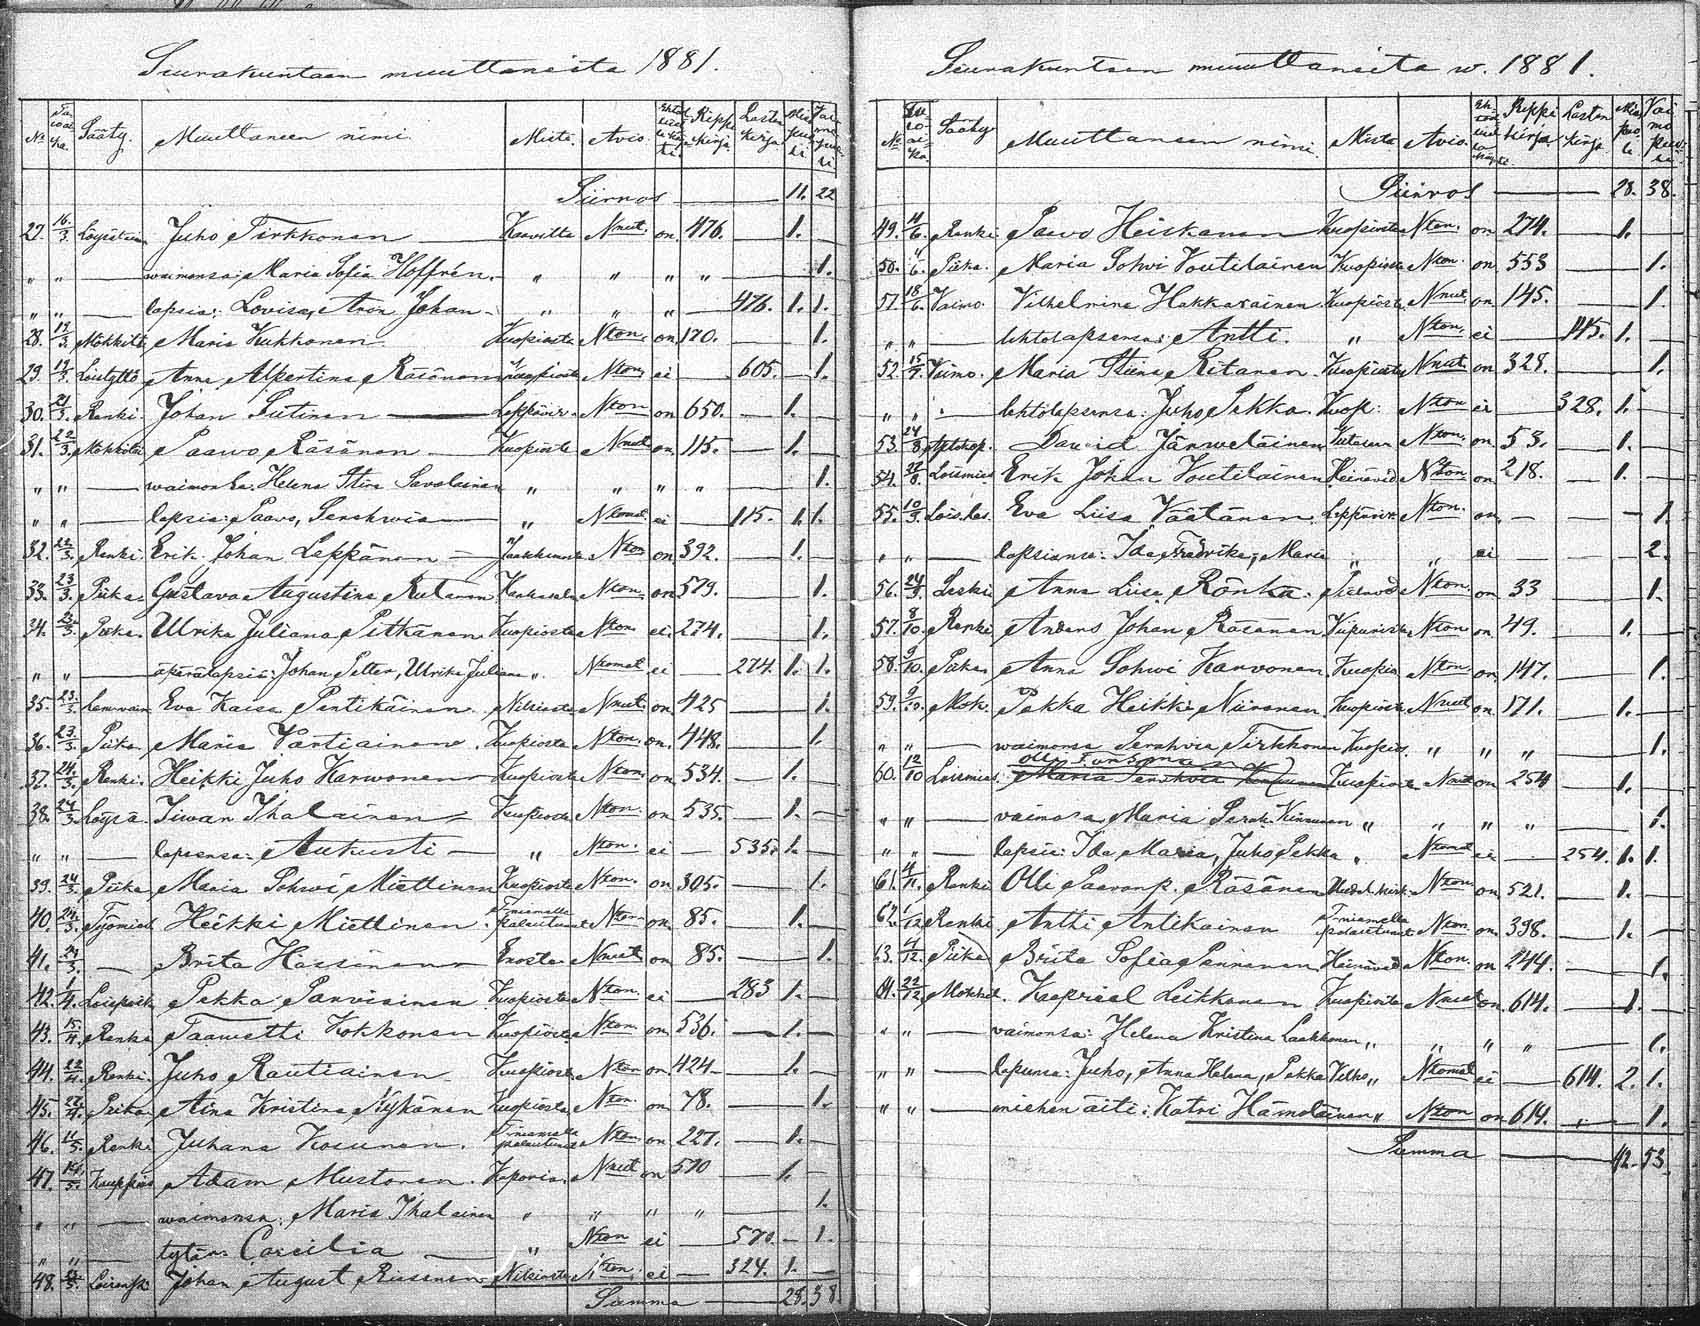 Seurakuntaan muuttaneita 1881.
№ Säåty. Muuttaneen nimi. Mistä. Avio. Rippikirja. Lastenkirja
Siirros — 11. 22
27. 16/3. Juho Tirkkonen — Kaavilta Nnut. on. 476. — 1. —
" " — waimonsa: Maria Sofia Hoffrén. " " " " — 1.
" " — lapsia: Lovisa, Aron Johan — " " " 476. 1. 1.
28. 19/3. Maria Kukkonen. Kuopiosta Nton. on 170. — 1.
29. Loistyttö Anna Alpertina Räsänen Kuopiosta Nton. ei — 605. — 1.
30. 21/3. Renki. Johan Sutinen — Leppävir. Nton on 650. — 1. —
31. 22/3. Paavo Räsänen — Kuopiosta Nnut on. 115. — 1. —
" " — waimonsa: Helena Stiina Savolainen " " " " 1.
" " — lapsia: Paavo, Serahwia — " Ntomat ei — 115. 1. 1.
32. 22/3. Renki Erik Johan Leppänen — Nton on 392. — 1. —
33. 23/3. Piika Gustava Augustina Rutanen Nton. on 579. — 1.
34. 23/3. Piika. Ulrika Juliana Pitkänen Kuopiosta Nton. ei. 274. — 1.
" " äpärälapsia: Johan Petter, Ulrika Juliana ". Ntomat ei — 274. 1. 1.
35. 23/3. Eva Kaisa Pentikäinen. Nilsiästä Nnut. on 425 — 1.
36. 23/3. Piika Maria Vartiainen. Kuopiosta Nton. on. 448. — 1.
37. 24/3. Renki. Heikki Juho Karwonen Kuopiosta Nton. on 534. — 1.
38. 24/3. Loysä Iiwan Ihalainen — Kuopiosta Nton. on. 535. — 1. —
" " — lapsensa: Aukusti — " Nton. ei — 535. 1. —
39. 24/3. Piika Maria Sohwi Miettinen Kuopiosta Nton. on 305. — 1.
40. 24/3. Työmies Heikki Miettinen. Nton on. 85. — 1. —
41. 24/3. — Brita Hassinen Enosta Nnut on 85. — 1.
42. 1/4. Pekka Parviainen Kuopiosta Nton. ei — 283 1. —
43. 15/4. Renki Taawetti Kokkonen Kuopiosta Nton. on 536. — 1. —
44. 22/4. Renki. Juho Rautiainen Kuopiost. Nton on 424 — 1. —
45. 22/4. Piika Aina Kristina Nykänen Kuopiosta Nton. on 78. — 1.
46. 11/5. Renki Juhana Kosunen. Nton on 227. — 1. —
47. 14/5. Adam Mustonen. Nnut on 570 — 1.
" " — waimonsa: Maria Ihalainen " " " " — 1.
" " — tytär: Caecilia — " Nton ei — 570. — 1.
48. Johan August Nilsiästä Nton. ei — 324. 1. —
Summa — 28. 38.
Seurakuntaan muuttaneita w. 1881.
№ Säåty Muuttaneen nimi. Mistä Avio. Rippikirja Lastenkirja
Siirros — 28. 38.
49. 11/6. Renki Paavo Heiskanen Kuopiosta Nton. on 274. — 1. —
50. "/6. Piika. Maria Sohwi Voutilainen Kuopiosta Nton. on 553 — 1.
51. 18/6. Vaimo. Vilhelmina Hakkarainen Kuopiosta Nnut. on 145. — 1.
" " — lehtolapsensa: Antti. " Nton. ei — 145. 1. —
52. 15/7. Vaimo. Maria Stiina Ritanen. Kuopiosta Nnut. on 328. — 1.
" " " lehtolapsensa: Juho Pekka. Kuop. Nton ei 328. 1. —
53. 24/8. David Järweläinen Nton. on. 53. — 1. —
54. Loismies Erik Johan Voutilainen Heinäved Nton on 218. — 1.
55. 10/9. Eva Liisa Väätänen Leppävir. Nton. on — — — 1.
" " — lapsiansa: Ida Fredrika, Maria " " ei 2.
56. 24/9. Leski Anna Liisa Rönkä. Nton. on 33 1.
57. 8/10. Renki Anders Johan Räsänen Viipurista Nton on. 49. 1.
58. 9/10. Piika Anna Sohwi Karvonen Kuopios. Nton. on 147. — 1.
59. 9/10. Mök. Pekka Heikki Niiranen. Kuopiosta Nnut on 171. — 1. —
" " — waimonsa Serahvia Tirkkonen Kuopios. " " " 1.
60. 12/10 Loismies Olli
Maria Serahvia Kuopiosta Nnut on 254 — 1. —
" " — vaimonsa Maria Sarah Kinnunen " " " " 1.
" " — lapsia: Ida Maria, Juho Pekka " Ntomat ei — 254. 1. 1.
61. 4/11. Renki Olli Paavonp. Räsänen Nton on 521. — 1. —
62. 1/12. Renki Antti Antikainen Nton. on. 398. — 1. —
63. 4/12. Piika Brita Sofia Pennanen Heinäved Nton. on 244. — 1.
64. 22/12. Kaapriel Leikkonen Kuopiosta Nnut on 614. — 1. —
" " — vaimonsa: Helena Kristina Laakkonen " " " " — 1.
" " — lapsensa: Juho, Anna Helena, Pekka Vilho " Ntomat ei — 614. 2. 1.
" " — miehen äiti: Katri Hämäläinen " Nton on 614. — 1.
Summa — 42. 53.